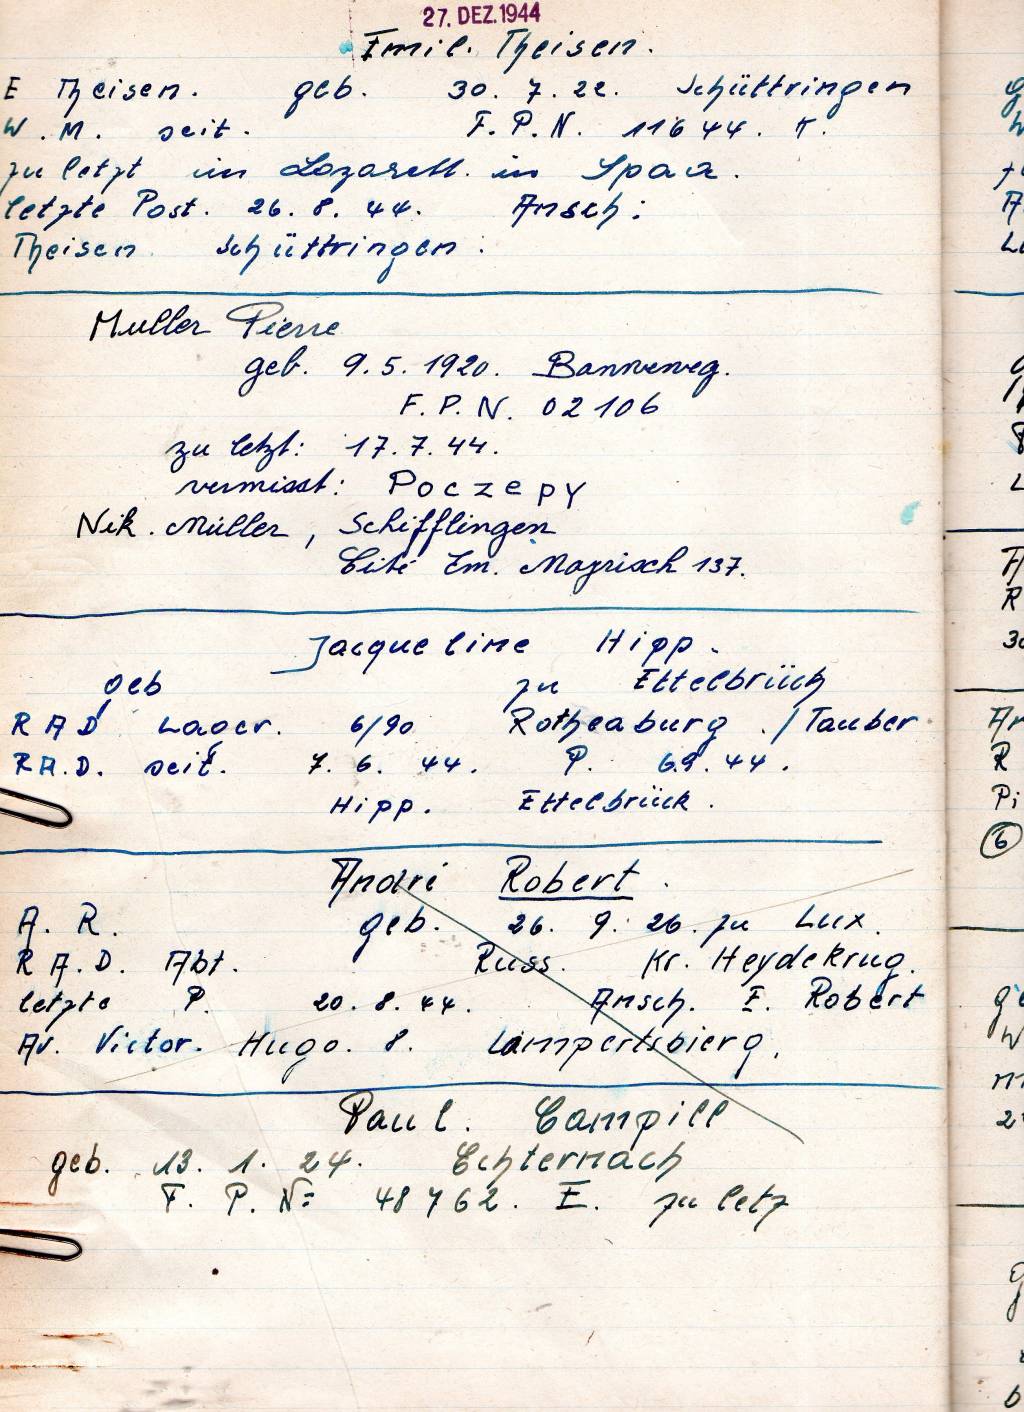 27. DEZ. 1944
Emil. Theisen.
E Theisen. geb. 30. 7. 22. Schüttringen
W. M. seit. F. P. N. 11644. K.
zu letzt im Lazarett. in Spaa.
letzte Post. 26. 8. 44. Ansch:
Theisen. Schüttringen.
Muller Pierre
geb. 9. 5. 1920. Bonneweg.
F. P. N. 02106
zu letzt: 17. 7. 44.
vermisst: Poczepy
Nik. Müller, Schifflingen
Cité Em. Mayrisch 137.
Jacqueline Hipp.
geb zu Ettelbrück
RAD Lager. 6/90 Rothenburg ./Tauber
RA.D. seit. 7. 6. 44. P. 6.9. 44.
Hipp. Ettelbrück.
André Robert.
A. R. geb. 26. 9. 26. zu Lux.
RA.D. Abt. Russ. Kr. Heydekrug.
letzte P. 20. 8. 44. Ansch. E. Robert
Av. Victor. Hugo. 8. Lampertsbierg.
Paul. Campill
geb. 13. 1. 24. Echternach
F. P. N: 48762. E. zu letz